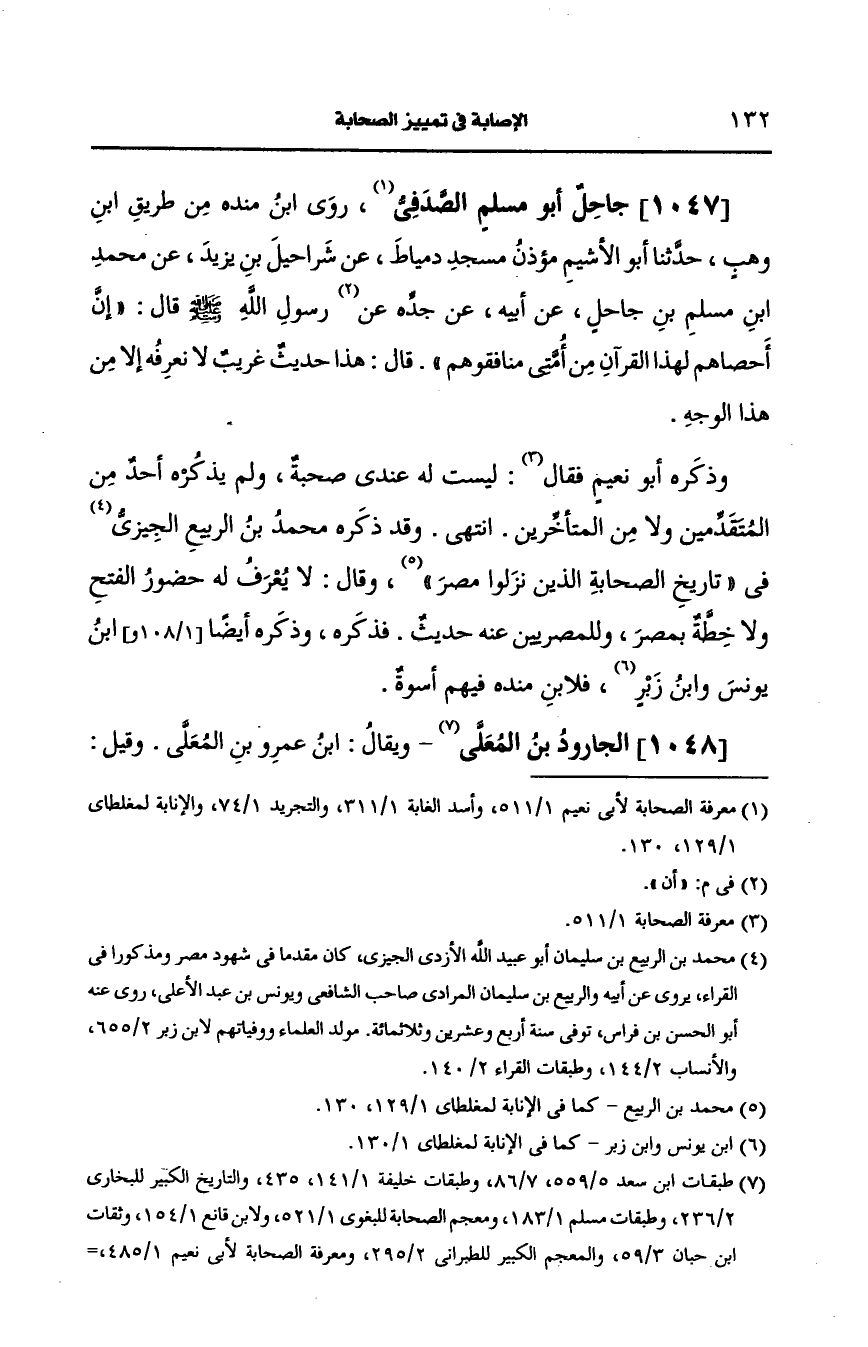 ١٣٢ الإصابة فى تمييز الصحابة
[١٠٤٧] جاحِلٌ أبو مسلمٍ الصَّدَفِيُّ(١) ، روَى ابنُ منده مِن طريقِ ابنِ
وهبٍ ، حدَّثنا أبو الأشيمِ مؤذنُ مسجدِ دمياطَ ، عن شَراحيلَ بنِ يزيدَ ، عن محمدِ
ابنِ مسلمِ بنِ جاحلٍ ، عن أبيه ، عن جدِّه عن(٢) رسولِ اللَّهِ ﷺ قال : « إنَّ
أَحصاهم لهذا القرآنِ مِن أُمَّتِى منافقوهم » . قال : هذا حديثٌ غريبٌ لا نعرِفُه إلا مِن
هذا الوجهِ .
وذكَره أبو نعيمٍ فقال(٣) : ليست له عندى صحبةٌ ، ولم يذكُرْه أحدٌ مِن
المُتَقَدِّمين ولا مِن المتأخِّرين . انتهى . وقد ذكَره محمدُ بنُ الربيعِ الجِيزىُّ(٤)
فى « تاريخِ الصحابةِ الذين نزَلوا مصرَ »(٥) ، وقال : لا يُعْرَفُ له حضورُ الفتحِ
ولا خِطَّةٌ بمصرَ ، وللمصريين عنه حديثٌ . فذكَره ، وذكَره أيضًا [١٠٨/١و] ابنُ
يونسَ وابنُ زَبْرٍ(٦) ، فلابنِ منده فيهم أسوةٌ .
[١٠٤٨] الجارودُ بنُ المُعَلَّى(٧) – ويقالُ : ابنُ عمرِو بنِ المُعَلَّى . وقيل :
(١) معرفة الصحابة لأبى نعيم ٥١١/١، وأسد الغابة ٣١١/١، والتجريد ٧٤/١، والإنابة لمغلطاى
١٢٩/١، ١٣٠.
(٢) فى م: « أن ».
(٣) معرفة الصحابة ٥١١/١.
(٤) محمد بن الربيع بن سليمان أبو عبيد اللَّه الأزدى الجيزى، كان مقدما فى شهود مصر ومذكورا فى
القراء، يروى عن أبيه والربيع بن سليمان المرادى صاحب الشافعى ويونس بن عبد الأعلى، روى عنه
أبو الحسن بن فراس، توفى سنة أربع وعشرين وثلاثمائة. مولد العلماء ووفياتهم لابن زبر ٦٥٥/٢،
والأنساب ١٤٤/٢، وطبقات القراء ٢/ ١٤٠.
(٥) محمد بن الربيع – كما فى الإنابة لمغلطاى ١٢٩/١، ١٣٠.
(٦) ابن يونس وابن زبر – كما فى الإنابة لمغلطاى ١٣٠/١.
(٧) طبقات ابن سعد ٥٥٩/٥، ٨٦/٧، وطبقات خليفة ١٤١/١، ٤٣٥، والتاريخ الكبير للبخارى
٢٣٦/٢، وطبقات مسلم ١٨٣/١، ومعجم الصحابة للبغوى ٥٢١/١، ولابن قانع ١٥٤/١، وثقات
ابن حبان ٥٩/٣، والمعجم الكبير للطبرانى ٢٩٥/٢، ومعرفة الصحابة لأبى نعيم ٤٨٥/١،=